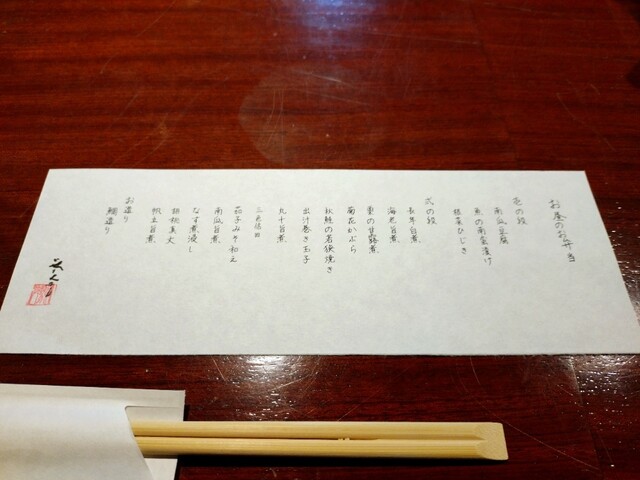 お昼のお弁当
壱の段
南瓜豆腐
魚の南蛮漬け
根菜ひじき
弐の段
長芋旨煮
海老旨煮
栗の甘露煮
菊花かぶら
秋鮭の若狭焼き
出汁巻き玉子
丸十旨煮
茄子みそ和え
南瓜旨煮
なす煮浸し
胡桃真丈
帆立旨煮
お造り
鯛造り